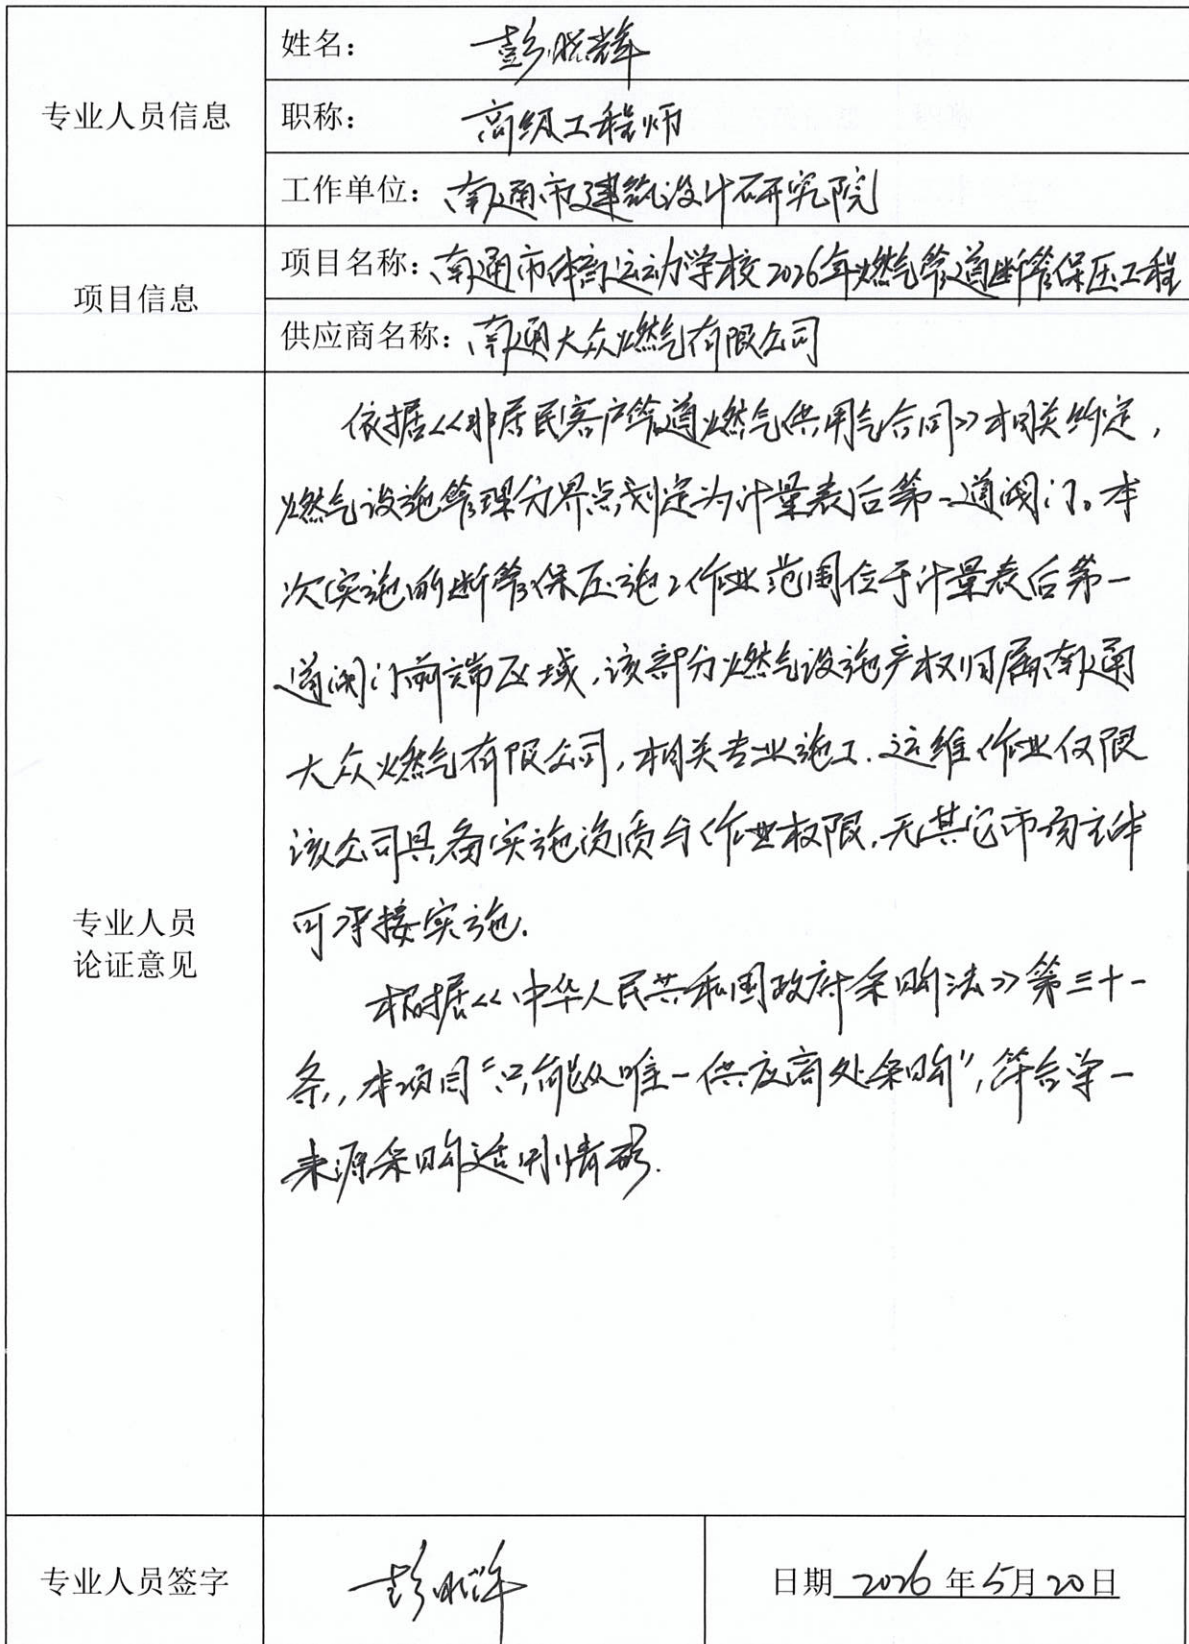 专业人员信息
姓名： 彭晓辉
职称： 高级工程师
工作单位：南通市建筑设计研究院
项目信息
项目名称：南通市体育运动学校2026年燃气管道断管保压工程
供应商名称：南通大众燃气有限公司
专业人员
论证意见
依据《非居民客户管道燃气供用气合同》相关约定，
燃气设施管理分界点划定为计量表后第一道阀门。本
次实施的断管保压施工作业范围位于计量表后第一
道阀门前端区域，该部分燃气设施产权归属南通
大众燃气有限公司，相关专业施工、运维作业仅限
该公司具备实施资质与作业权限，无其它市场主体
可承接实施.
根据《中华人民共和国政府采购法》第三十一
条，本项目“只能从唯一供应商处采购”，符合单一
来源采购适用情形.
专业人员签字
彭晓辉
日期 2026 年 5月 20日